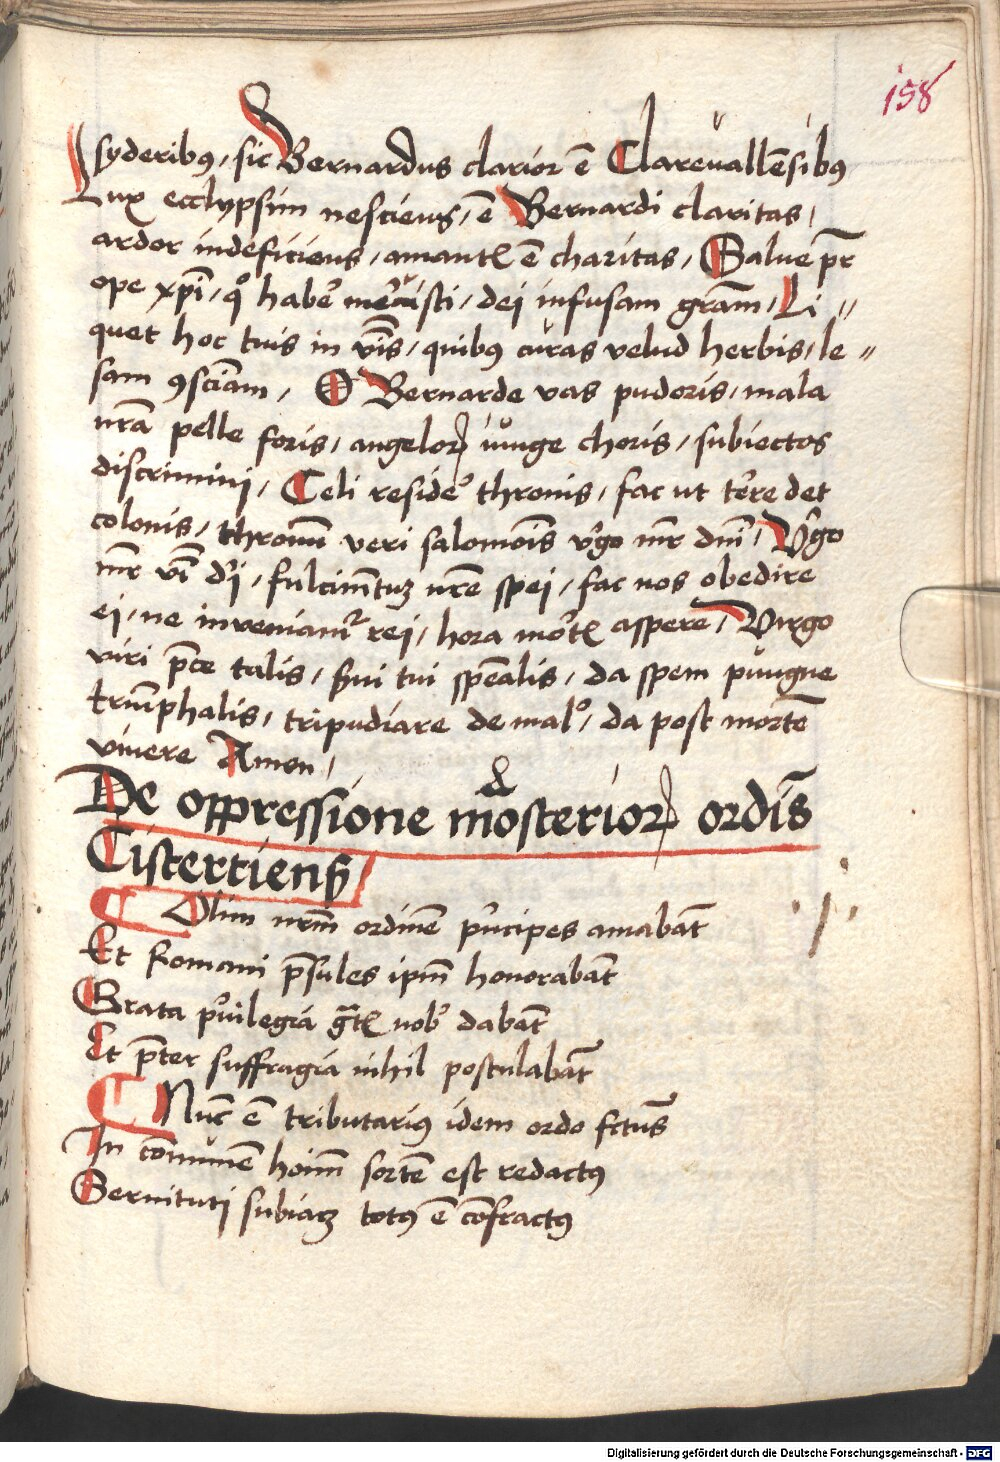 158
syderibꝰ, sic Bernardus clarior ē Clarevallēsibꝰ
Lux ecclypsim nesciens, ē Bernardi claritas,
ardor indeficiens, amantꝭ ē charitas, Salue pr̄
ope xp̄i, qͦ haber̕ meruisti, dei infusam gr̄am, Li〃
quet hoc tuis in v̄bis, quibꝰ curas velud herbis, le〃
sam ꝯsciām, O Bernarde vas pudoris, mala
nr̄a pelle foris, angeloꝝ iunge choris, subiectos
discrimini, Celi reside͛ thronis, fac ut terre det
colonis, thronū veri salomōis v̕go mr̄ dn̄i, V̕go
mr̄ vi͞ di, fulcimētuꝫ nr̄e spei, fac nos obedire
ei, ne inveniamr̕ rei, hora mortꝭ aspere, Virgo
viri p̄ce talis, s̄ui tui sp̄ealis, da spem pungne
triūphalis, tripudiare de malo͛, da post mortē
vivere Amen,
De oppressione mōasterioꝝ ordīs
Cisterciens̄
Olim nr̄m ordinē p̕ncipes amabāt
Et Romani p̄sules ip̄m honorabāt
Grata p̕uilegia gr̄tꝭ nob̕ dabāt
Et p̄ter suffragia nihil postulabāt
Nūc ē tributariꝰ idem ordo fctūs
In cōmunē hoim̄ sortē est redactꝰ
Seruituti subiacꝫ totꝰ ē cōfractꝰ
Digitalisierung gefördert durch die Deutsche Forschungsgemeinschaft - DFG